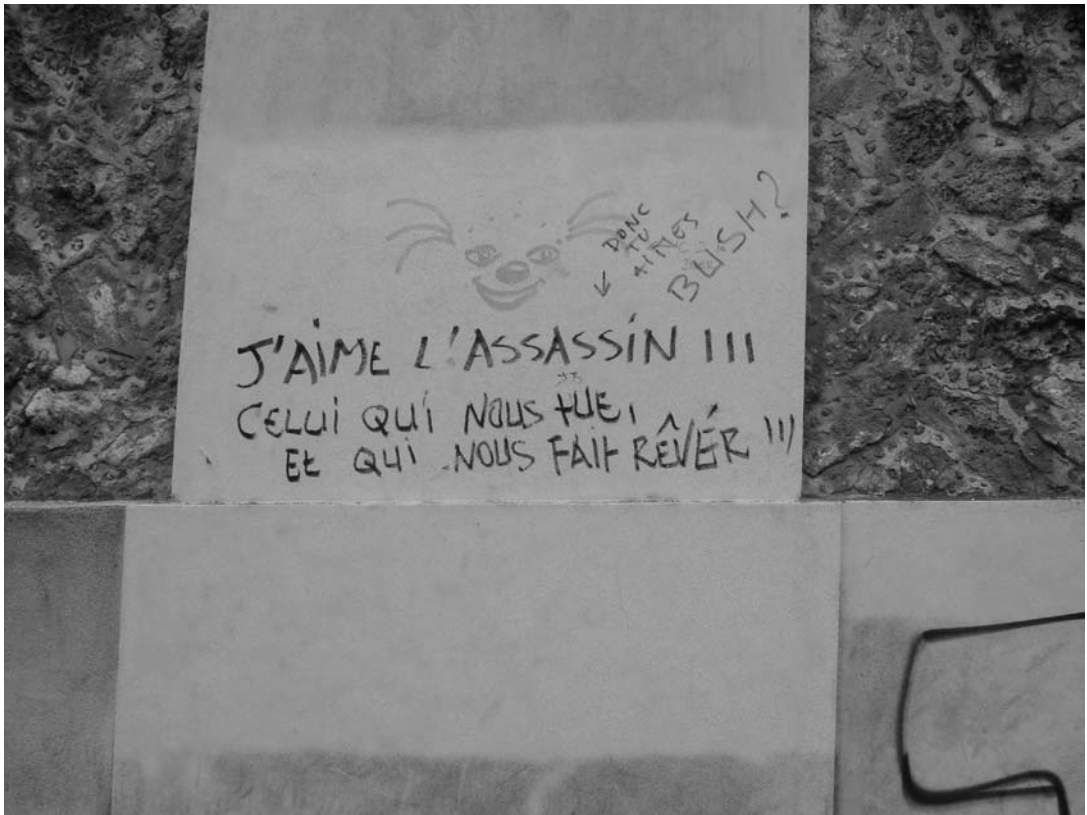 DONC
TU
AIMES
BUSH?
J'AIME L'ASSASSIN !!!
CELUI QUI NOUS TUE,
Et QUI NOUS FAIT RÊVÉR !!!